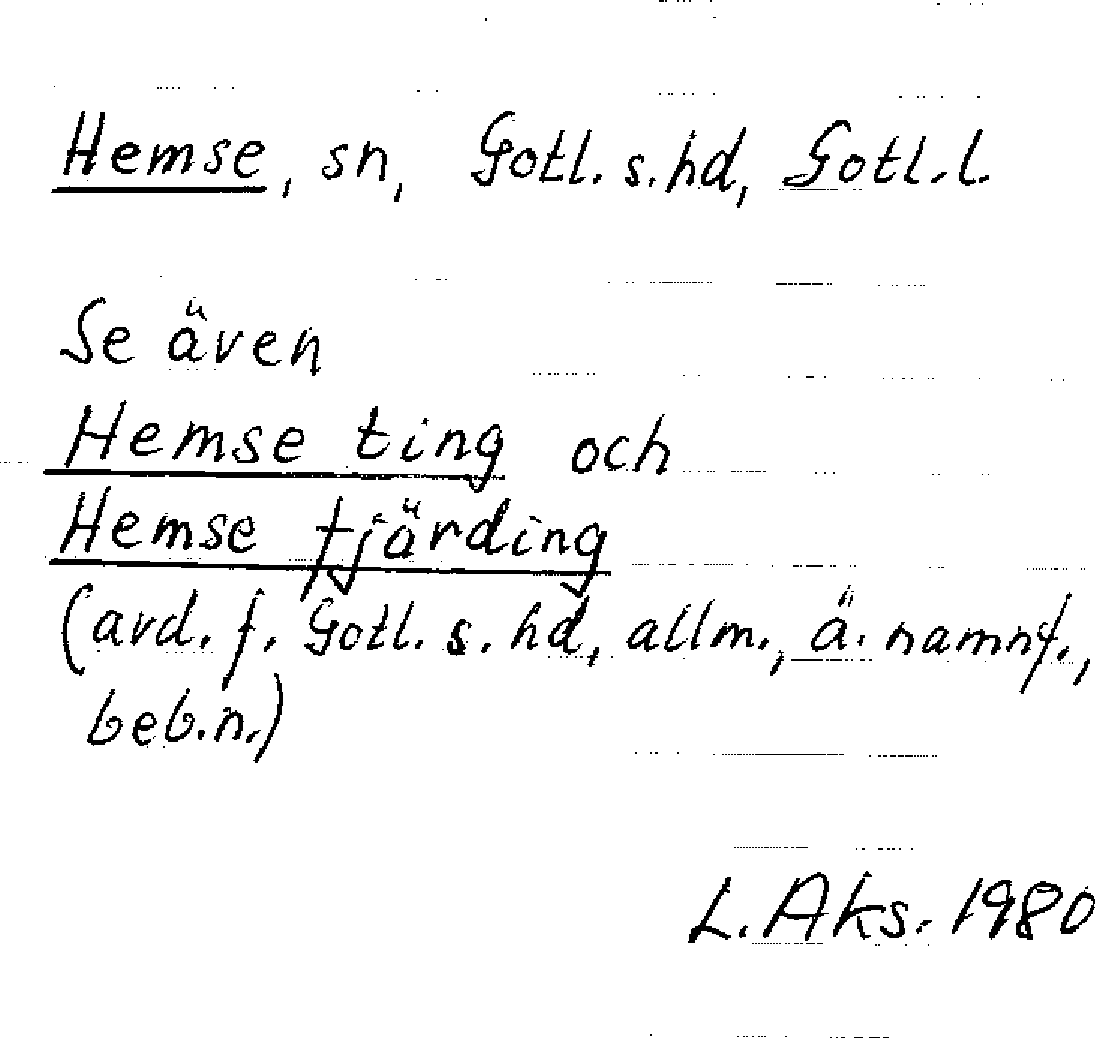 Hemse, sn, Gotl. s. hd, Gotl. l.
Se även
Hemse ting och
Hemse fjärding
(avd. f. Gotl. s. hd, allm., ä. namnf.,
beb.n.)
L. Aks. 1980